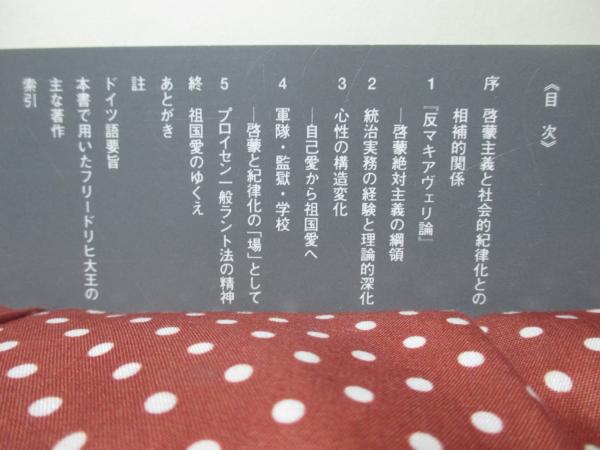 《目 次》
序 啓蒙主義と社会的紀律化との
相補的関係
1 『反マキアヴェリ論』
―啓蒙絶対主義の綱領
2 統治実務の経験と理論的深化
3 心性の構造変化
―自己愛から祖国愛へ
4 軍隊・監獄・学校
―啓蒙と紀律化の「場」として
5 プロイセン一般ラント法の精神
終 祖国愛のゆくえ
あとがき
註
ドイツ語要旨
本書で用いたフリードリヒ大王の
主な著作
索引